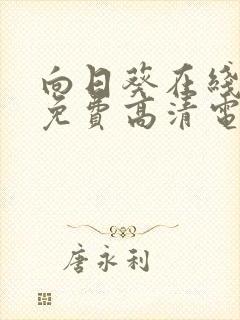 向日葵在线
免費高清電
唐永利